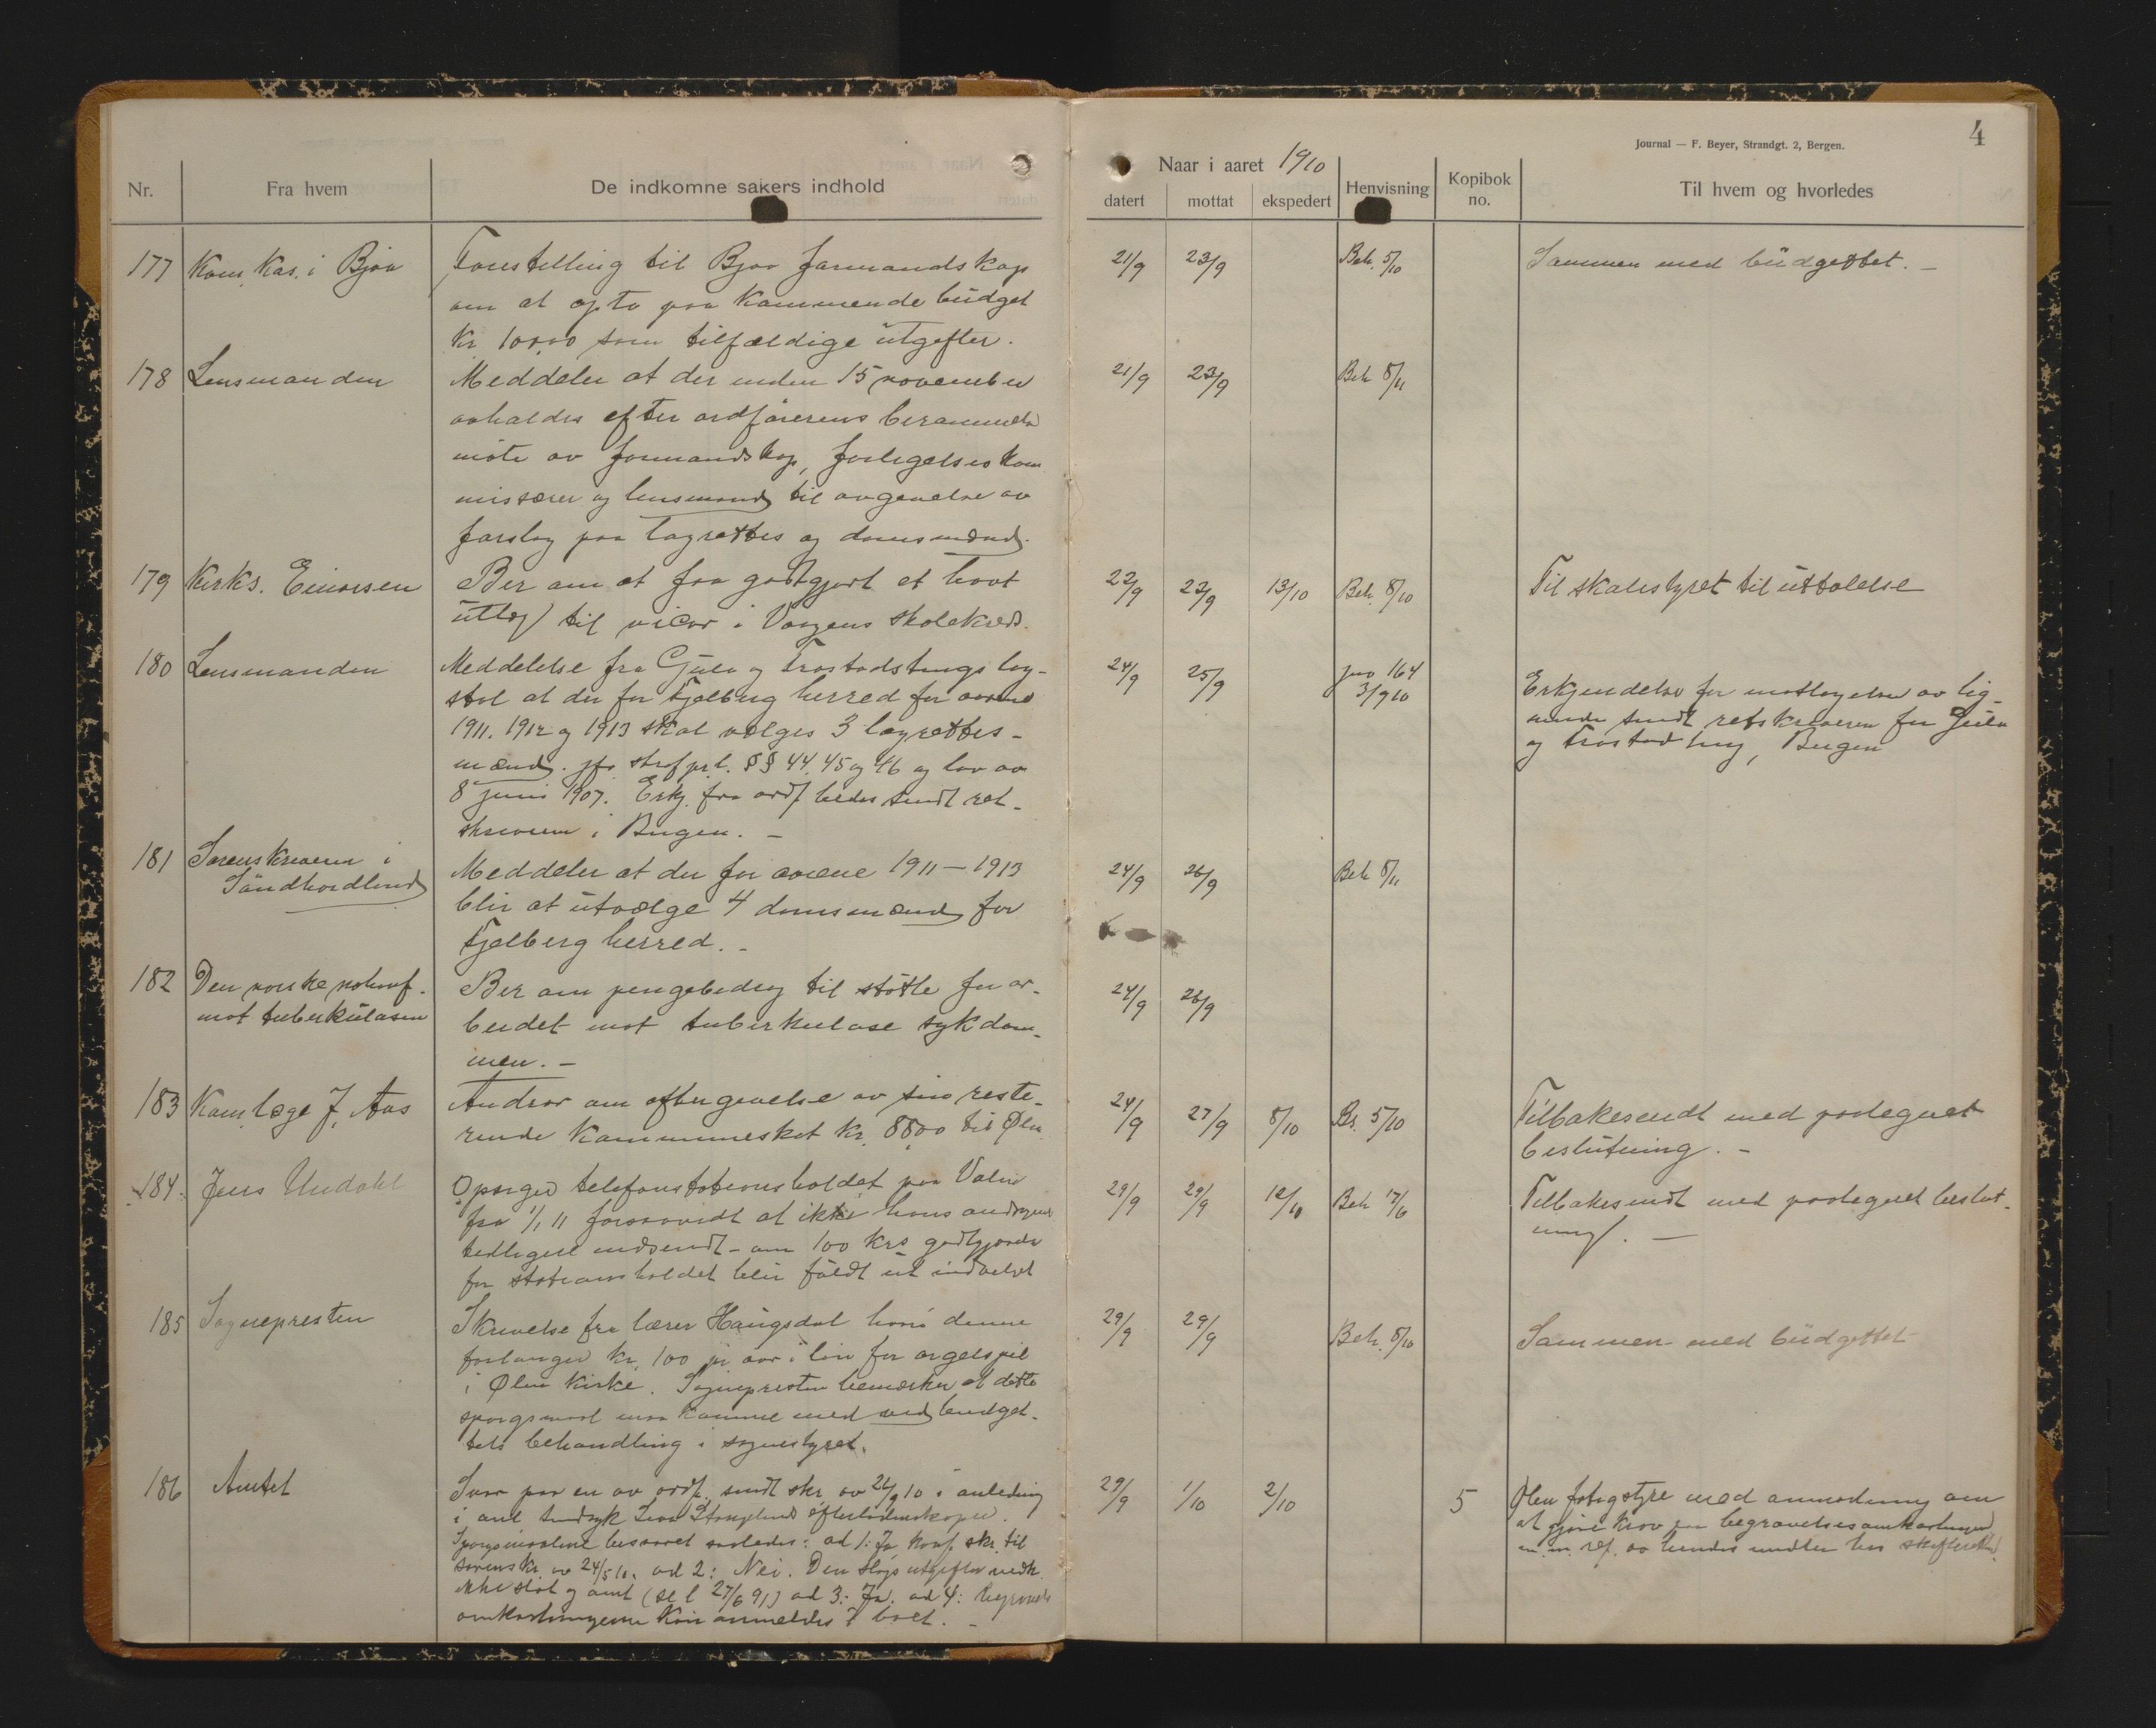 Journal — F. Beyer, Strandgt. 2, Bergen.
4
Nr.
Fra hvem
De indkomne sakers indhold
Naar i aaret 1910
datert
mottat
ekspedert
Henvisning
Kopibok no.
Til hvem og hvorledes
177
Kom. Kas. i Bjoa
Forestilling til Bjoa formandskap
om at opta paa kommende budget
kr 100.00 som tilfældige utgifter.
21/9
23/9
Beh. 5/10
Sammen med budgettet. —
178
Lensmanden
Meddeler at der inden 15 november
avholdes efter ordførerens berammelse
møte av formandskap, forligelseskom
missærer og lensmand til avgivelse av
forslag paa lagrettes og domsmænd.
21/9
23/9
Beh 8/11
179
Kirks. Einarsen
Ber om at faa godtgjort et havt
utlæg til vicar i Vaagens skolekreds.
22/9
23/9
13/10
Beh. 8/10
Til skolestyret til uttalelse
180
Lensmanden
Meddelelse fra Gula og Frostatings lag-
stol at der for Fjelberg herred for aarene
1911. 1912 og 1913 skal vælges 3 lagrettes-
mænd. jfr. strafpr.l. §§ 44, 45 og 46 og lov av
8 juni 1907. Erkj. fra ordf bedes sendt ret-
skriveren i Bergen. —
24/9
25/9
jnr 164
3/9 10
Erkjendelse for mottagelse av lig-
nende sendt retskriveren for Gula
og Frostating, Bergen
181
Sorenskriveren i
Søndhordland
Meddeler at der for aarene 1911 — 1913
blir at utvælge 4 domsmænd for
Fjelberg herred. -
24/9
26/9
Beh 8/11
182
Den norske nationalf.
mot tuberkulosen
Ber om pengebidrag til støtte for ar-
beidet mot tuberkulose sykdom-
men. —
24/9
26/9
183
Kom. læge J. Aas
Andrar om eftergivelse av sin reste-
rende kommuneskat kr. 88.00 til Ølen
24/9
27/9
8/10
Bs. 5/10
Tilbakesendt med paategnet
beslutning. —
184.
Jens Undahl
Opsiger telefonstationsholdet paa Valen
fra 1/1 11 forsaavidt at ikke hans andragende
tidligere indsendt - om 100 krs godtgjørelse
for stationsholdet blir fuldt ut indvilget
29/9
29/9
12/10
Beh
Tilbakesendt med paategnet beslut-
ning. —
185
Sognepresten
Skrivelse fra lærer Haugsdal hvori denne
forlanger kr. 100 pr. aar i løn for orgelspil
i Ølen kirke. Sognepresten bemærker at dette
spørgsmaal maa komme med ved budget-
tets behandling i sognestyret.
29/9
29/9
Beh. 8/10
Sammen med budgettet
186
Amtet
Svar paa en av ordf. sendt skr av 26/9 10 i anledning
i anl sindssyk efterladenskaper.
Spørgsmaalene besvaret saaledes: ad 1: Ja skr. til
sorenskr. av 24/5 10. ad 2: Nei. Den slags utgifter vedk.
ikke stat og amt (se l 27/6 91) ad 3: Ja. ad 4: begravelses
omkostningerne kan anmeldes i boet. -
29/9
1/10
2/10
5
Ølen fatigstyre med anmodning om
at gjøre krav paa begravelsesomkostninger
m. m. ref. av hendes midler hos skifteretten.